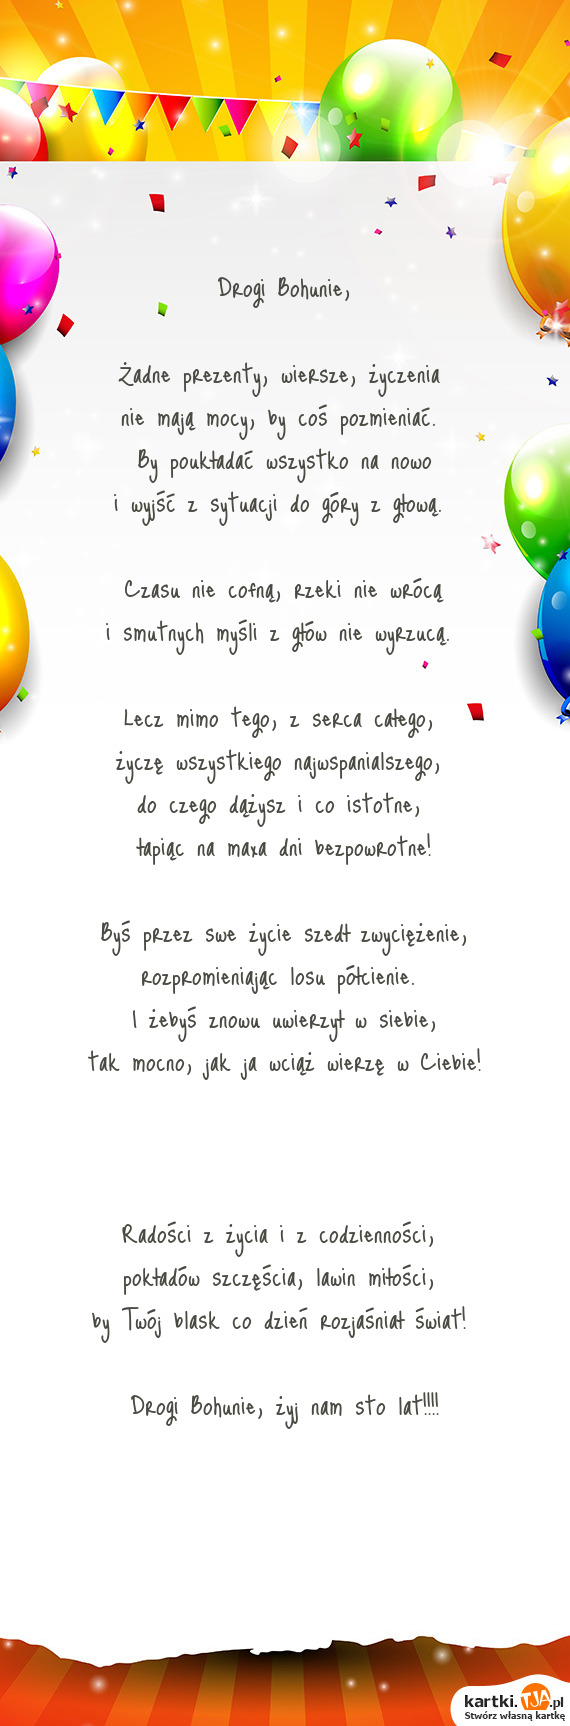 Drogi Bohunie,
Żadne prezenty, wiersze, życzenia
nie mają mocy, by coś pozmieniać.
By poukładać wszystko na nowo
i wyjść z sytuacji do góry z głową.
Czasu nie cofną, rzeki nie wrócą
i smutnych myśli z głów nie wyrzucą.
Lecz mimo tego, z serca całego,
życzę wszystkiego najwspanialszego,
do czego dążysz i co istotne,
łapiąc na maxa dni bezpowrotne!
Byś przez swe życie szedł zwyciężenie,
rozpromieniając losu półcienie.
I żebyś znowu uwierzył w siebie,
tak mocno, jak ja wciąż wierzę w Ciebie!
Radości z życia i z codzienności,
pokładów szczęścia, lawin miłości,
by Twój blask co dzień rozjaśniał świat!
Drogi Bohunie, żyj nam sto lat!!!!
kartki.TJA.pl
Stwórz własną kartkę